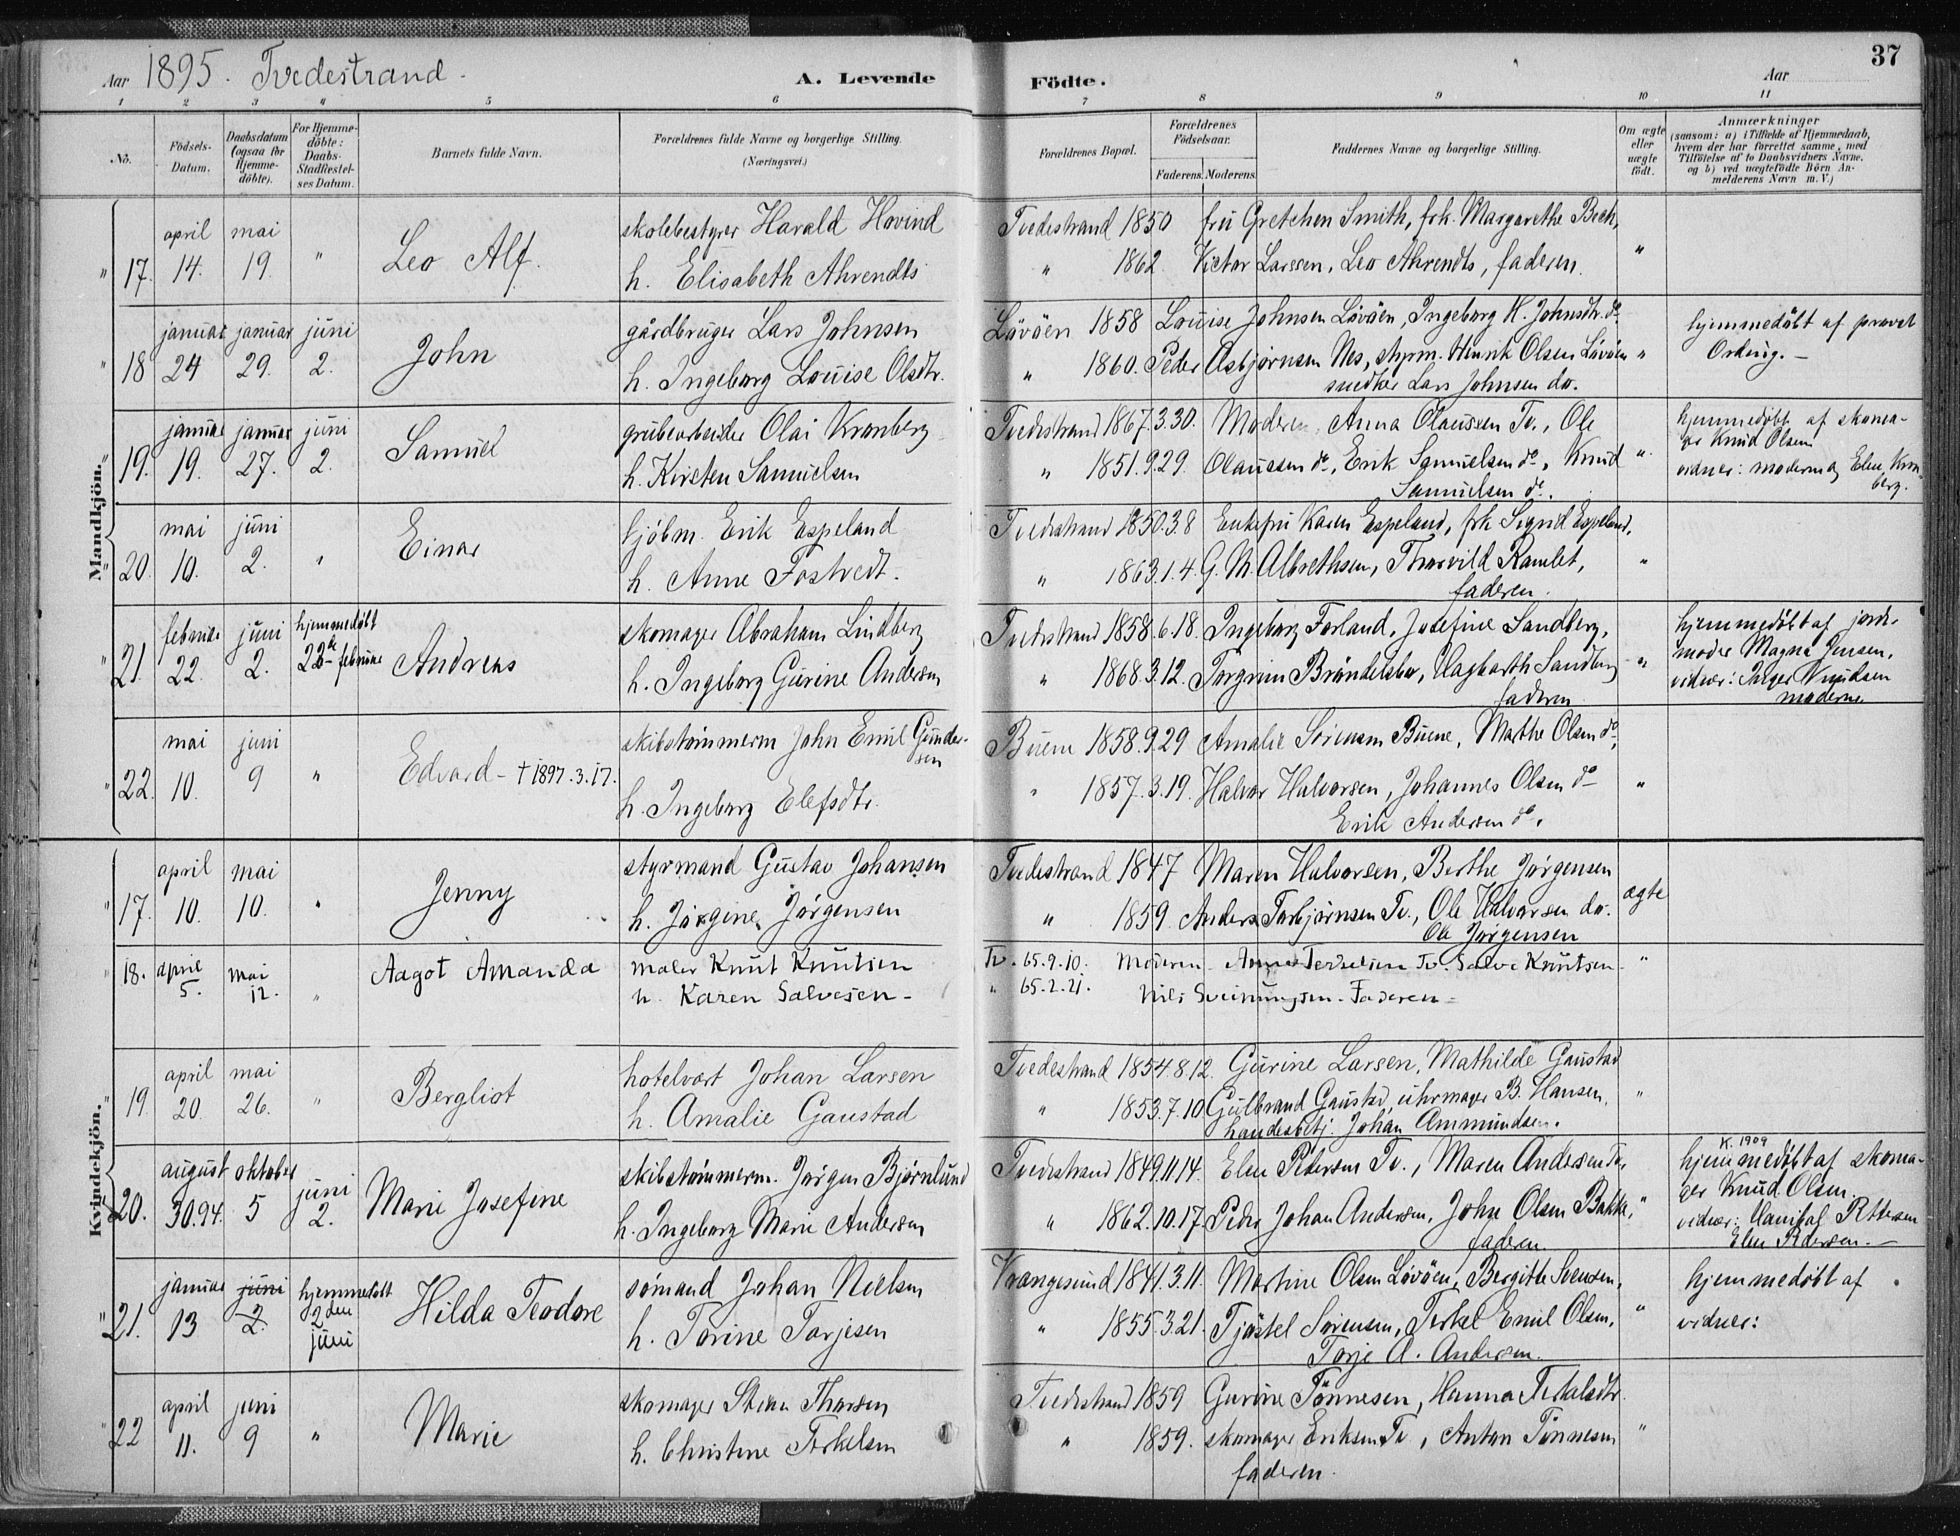 Aar 1895. Tvedestrand.
A. Levende Födte.
Aar
37
1 2 3 4 5 6 7 8 9 10 11
No.
Födsels-Datum.
Daabsdatum (ogsaa for Hjemme-döbte).
For Hjemme-döbte: Daabs-Stadfæstel-ses Datum.
Barnets fulde Navn.
Forældrenes fulde Navne og borgerlige Stilling. (Næringsvei.)
Forældrenes Bopæl.
Forældrenes Födselsaar.
Faderens. Moderens.
Faddernes Navne og borgerlige Stilling.
Om ægte eller uægte födt.
Anmærkninger
(saasom: a) i Tilfælde af Hjemmedaab, hvem der har forrettet samme, med Tilföielse af to Daabsvidners Navne, og b) ved uægtefödte Börn An-melderens Navn m. V.)
Mandkjön.
17. april 14. mai 19. " Leo Alf.
skolebestyrer Harald Hovind
h. Elisabeth Ahrendts
Tvedestrand 1850 fru Gretchen Smith, frk. Margarethe Bech,
" 1862. Victor Larssen, Leo Ahrendts, faderen. "
18 januar 24 januar 29. juni 2. John
gårdbruger Lars Johnsen
h. Ingeborg Louise Olsdtr.
Lövöen 1858 Louise Johnsen Lövöen, Ingeborg H. Johnsdtr. do.
" 1860. Peder Asbjørnsen Nes, styrm. Henrik Olsen Lövöen "
snedker Lars Johnsen do.
hjemmedöbt af provst
Ording. –
19. januar 19. januar 27. juni 2. Samuel
grubearbeider Olai Kronberg
h. Kirsten Samuelsen
Tvedestrand 1867.3.30. Moderen, Anna Olaussen Tv., Ole
" 1851.9.29. Olaussen do, Erik Samuelsen do, Knud "
Samuelsen do.
hjemmedøbt af skoma-
ger Knud Olsen
vidner: moderen og Elen Kron-
berg.
20. mai 10. juni 2. " Einar
kjøbm. Erik Espeland
h. Anne Fostvedt.
Tvedestrand 1850.3.8 Enkefru Karen Espeland, frk Sigrid Espeland,
" 1863.1.4. G. M. Albrethsen, Thorvild Ramlet, "
faderen.
21. februar 22. juni 2. hjemmedøbt 22de februar Andreas
skomager Abraham Lindberg
h. Ingeborg Gurine Andersen
Tvedestrand 1858.6.18. Ingeborg Forland, Josefine Sandberg,
" 1868.3.12. Torgrim Bråndelsbo, Hagbarth Sandberg "
faderen
hjemmedøbt af jorde-
moder Magna Jensen,
vidner: Inger Knudsen
moderen
22. mai 10. juni 9 " Edvard – † 1897.3.17.
skibstömmerm John Emil Gunder-
sen
h. Ingeborg Elefsdtr.
Buene 1858.9.29 Amalie Sörensen Buene, Marthe Olsen do,
" 1857.3.19. Halvor Halvorsen, Johannes Olsen do "
Erik Andersen do.
Kvindekjön.
17. april 10. mai 10. " Jenny
styrmand Gustav Johansen
h. Jörgine Jörgensen
Tvedestrand 1847 Maren Halvorsen, Berthe Jörgensen
" 1859 Anders Torbjørnsen Tv., Ole Halvorsen do. ægte
Ole Jørgensen
18. april 5. mai 12. " Aagot Amanda
maler Knut Knutsen
h. Karen Salvesen –
Tv. 65.9.10. Moderen – Anne Terkelsen Tv. Salve Knutsen – "
" 65.2.21. Nils Sveinungsen – Faderen –
19. april 20. mai 26. " Bergliot
hotelvært Johan Larsen
h. Amalie Gaustad
Tvedestrand 1854.8.12. Gurine Larsen, Mathilde Gaustad
" 1853.7.10. Gulbrand Gaustad, uhrmager B. Hansen, "
handelsbetj. Johan Ammundsen.
20. august 30.94. oktober 5 juni 2. Marie Josefine
skibstömmerm. Jørgen Bjørnlund
h. Ingeborg Marie Andersen
Tvedestrand 1849.11.14. Elen Pedersen Tv., Maren Andersen Tv.,
" 1862.10.17. Peder Johan Andersen, John Olsen Bakke, "
faderen.
K. 1909
hjemmedøbt af skoma-
ger Knud Olsen.
vidner: Pettersen
Elen Pedersen. –
21. januar 13 juni 2. hjemmedøbt 2den juni Hilda Teodore
sömand Johan Nielsen
h. Torine Torjesen
Vrangesund 1841.3.11. Martine Olsen Lövöen, Bergitte Svensen,
" 1855.3.21. Tjöstel Sörensen, Terkel Emil Olsen, "
Torje A. Andersen.
hjemmedøbt af
vidner:
22 april 11. juni 9 " Marie
skomager Thorsen
h. Christene Terkelsen
Tvedestrand 1859 Gurine Tönnesen, Hanna Terkelsdtr.
" 1859. skomager Eriksen Tv., Anton Tönnesen "
faderen.